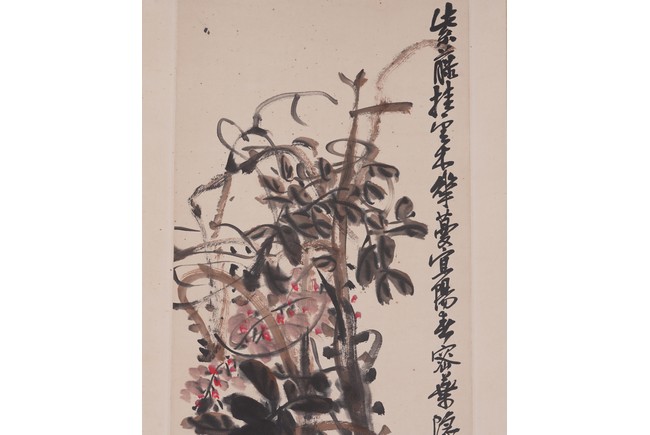 紫藤挂雲木華蔓宜陽春密葉隐